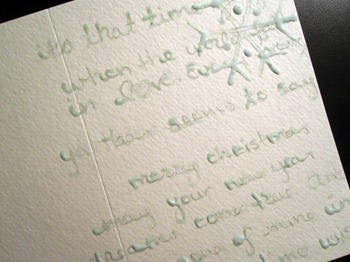 it's that time
when the world
in love. Every
you hear seems to say
merry christmas
may your new year
dreams come true
song of mine in
time wis